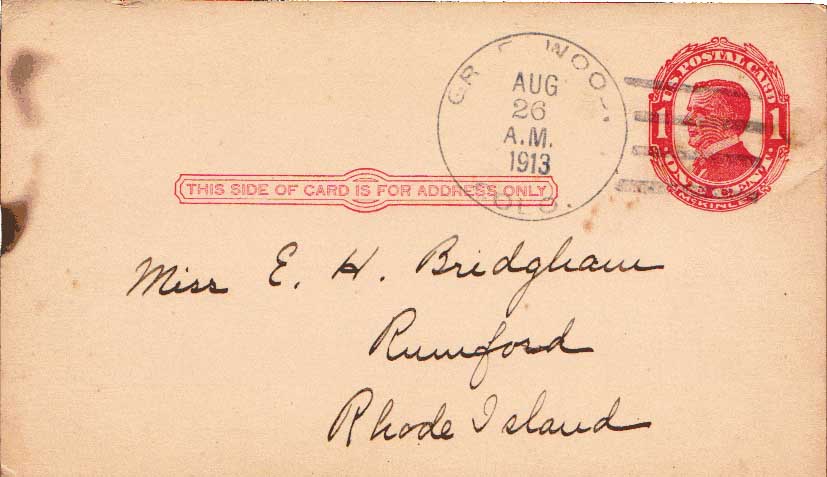 U.S. POSTAL CARD
1 1
ONE CENT
McKINLEY
AUG
26
A.M.
1913
COLO.
THIS SIDE OF CARD IS FOR ADDRESS ONLY
Miss E. H. Bridgham
Rumford
Rhode Island